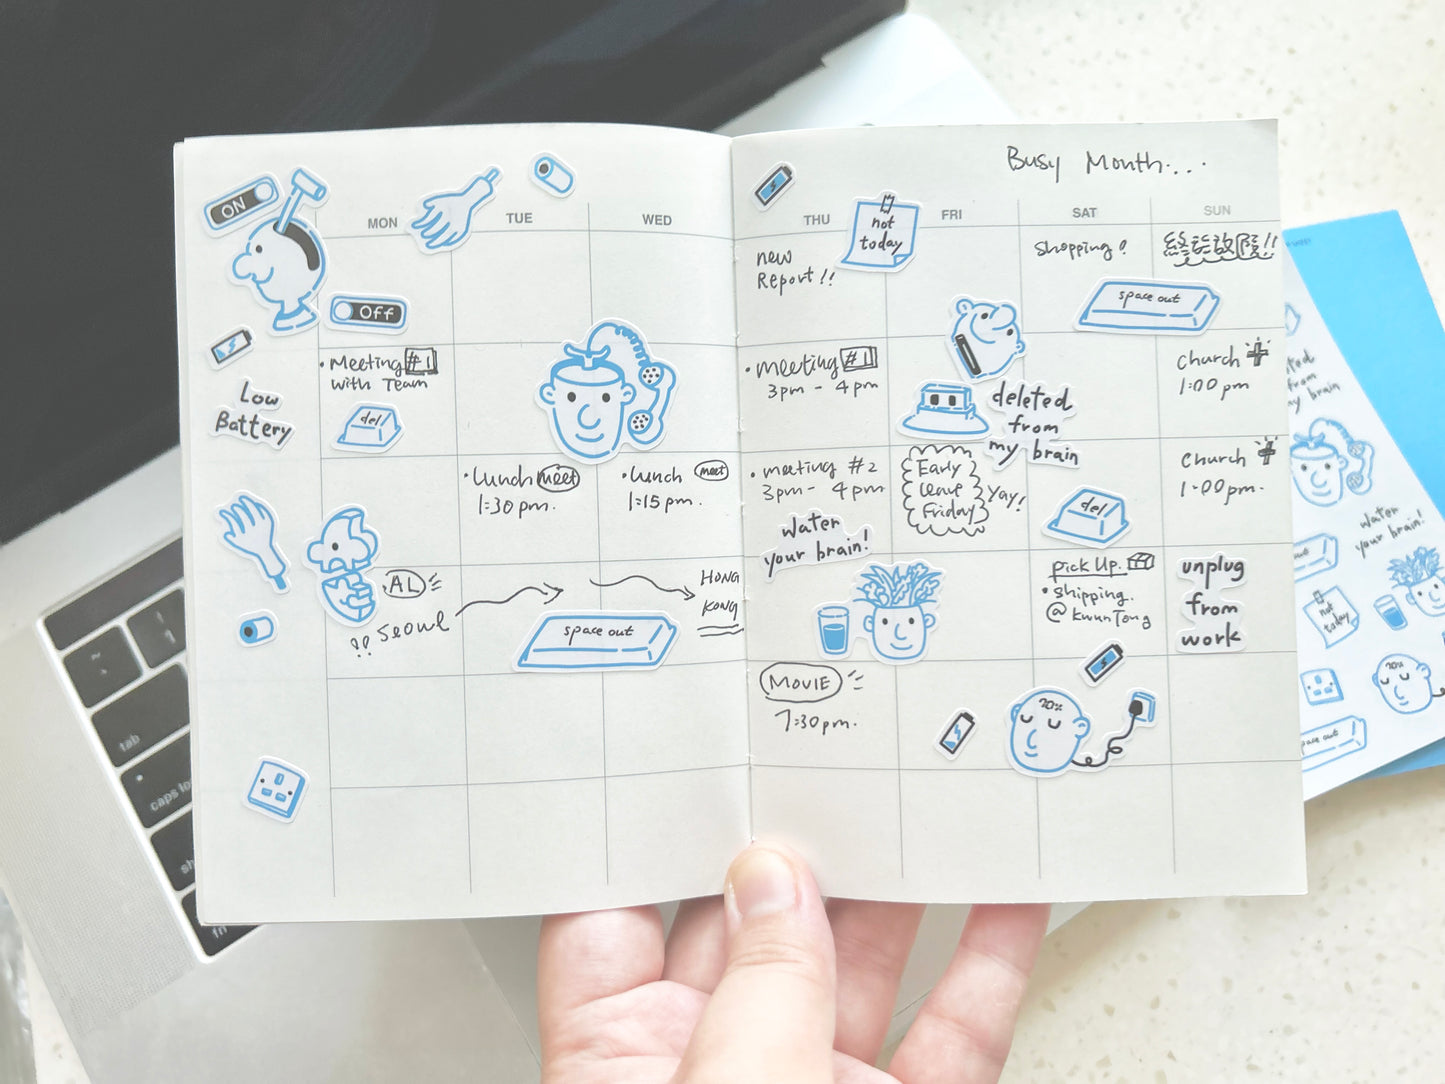 Busy Month...
ON
MON
TUE
WED
THU
FRI
SAT
SUN
not
today
new
Report!!
shopping!
終於放假!!
OFF
space out
Low
Battery
• Meeting #1
with Team
del
• meeting #1
3pm - 4pm
deleted
from
my brain
church
1:00 pm
• Lunch meet
1:30 pm.
• Lunch meet
1:15 pm.
• meeting #2
3pm - 4pm
Early
Leave
Friday
Yay!
del
church
1:00 pm.
water
your brain!
AL
!! Seoul
HONG
KONG
space out
pick up.
• shipping.
@ Kwun Tong
unplug
from
work
MOVIE
7:30 pm.
20%
tab
caps lo
sh
fn
from
my brain
water
your brain!
not
today
20%
space out